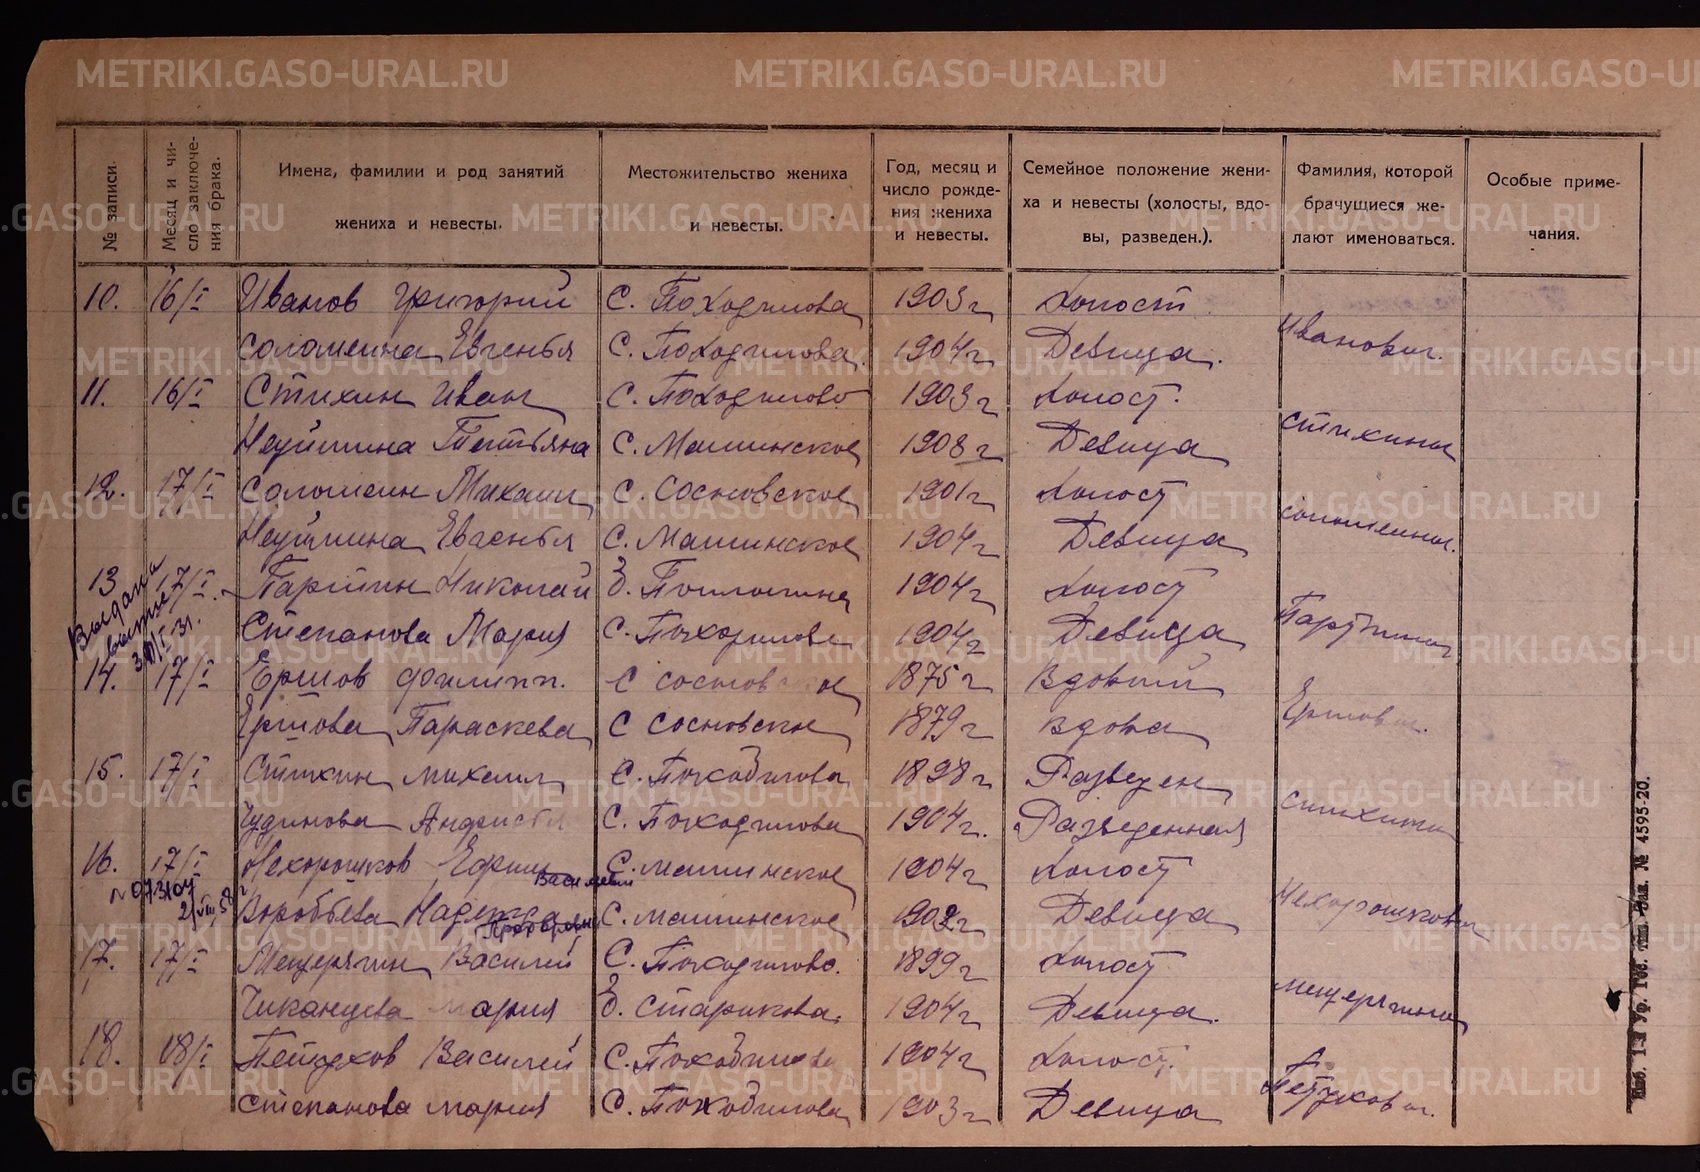 METRIKI.GASO-URAL.RU METRIKI.GASO-URAL.RU METRIKI.GASO-URAL.RU
№ записи.
Месяц и число заключения брака.
Имена, фамилии и род занятий
жениха и невесты.
Местожительство жениха
и невесты.
Год, месяц и
число рожде-
ния жениха
и невесты.
Семейное положение жени-
ха и невесты (холосты, вдо-
вы, разведен.).
Фамилия, которой
брачущиеся же-
лают именоваться.
Особые приме-
чания.
10. 16/I Иванов Григорий С. Походилова 1903 г Холост
Соломеина Евгенья С. Походилова 1904 г Девица. Ивановы.
11. 16/I Стихин Иван С. Походилово 1903 г Холост.
Неуймина Татьяна С. Маминское 1908 г Девица Стихины
12. 17/I Соломеин Михаил С. Сосновское 1901 г Холост
Неуймина Евгенья С. Маминское 1904 г Девица Соломеины.
13 17/I. Николай 1904 г Холост
Выдана
Степанова Мария С. Походилова 1904 г Девица
14. 17/I Ершов Филипп. С Сосновское 1875 г Вдовый
Ершова Параскева С Сосновское 1879 г Вдова Ершовы.
15. 17/I Стихин Михаил С. Походилова 1898 г Разведен
Чудинова С. Походилова 1904 г. Разведенная Стихины
16. 17/I Нехорошков Ефим Васильевич С. Маминское 1904 г Холост
Воробьева Надежда С. Маминское 1902 г Девица Нехорошковы
17. 17/I Мещерягин Василий С. Походилова. 1899 г Холост
Чиканцева Мария д. Старикова. 1904 г Девица. Мещерягины
18. 18/I Петухов Василий С. Походилова 1904 г Холост.
Степанова Мария С. Походилова 1903 г Девица Петуховы.